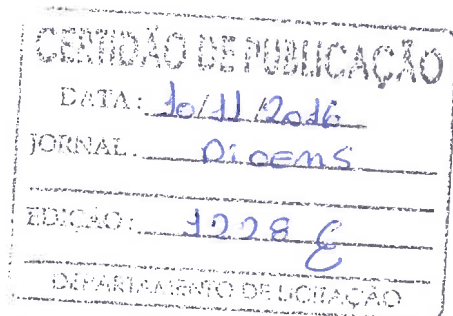 CERTIDÃO DE PUBLICAÇÃO
DATA: 10/11/2016
JORNAL: DIOEMS
EDIÇÃO: 1228
DEPARTAMENTO DE LICITAÇÃO